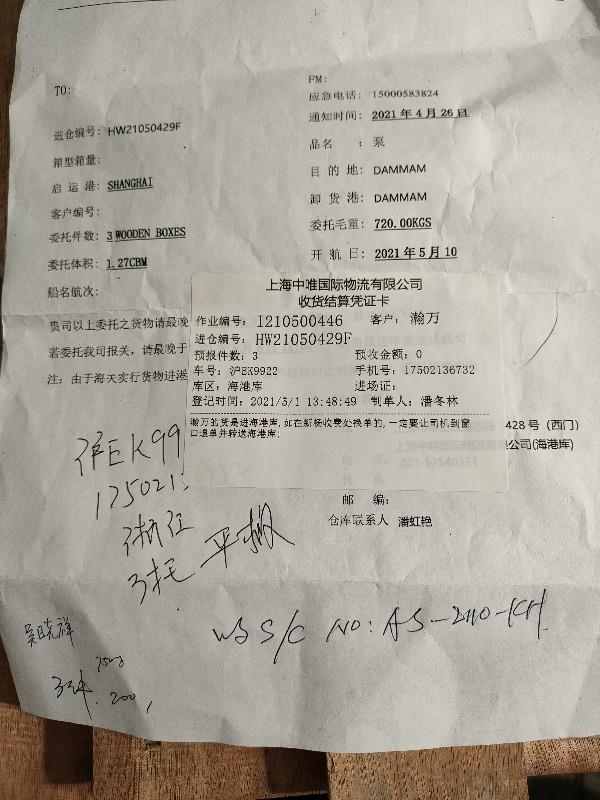 TO:
FM:
应急电话: 15000583824
通知时间: 2021年4月26日
进仓编号: HW21050429F
品名 : 泵
箱型箱量:
目的地: DAMMAM
启运港: SHANGHAI
卸货港: DAMMAM
客户编号:
委托毛重: 720.00KGS
委托件数: 3 WOODEN BOXES
开航日: 2021年5月10
委托体积: 1.27CBM
船名航次:
上海中唯国际物流有限公司
收货结算凭证卡
作业编号: I210500446 客户: 瀚万
进仓编号: HW21050429F
预报件数: 3 预收金额: 0
车号: 沪EK9922 手机号: 17502136732
库区: 海港库 进场证:
登记时间: 2021/5/1 13:48:49 制单人: 潘冬林
瀚万的货是进海港库, 如在新杨收费处换单的, 一定要让司机到窗
口退单并转送海港库;
贵司以上委托之货物请最晚
若委托我司报关, 请最晚于
注: 由于海天实行货物进港
428号 (西门)
公司(海港库)
邮 编:
仓库联系人 潘虹艳
沪EK99
175021
3托 平板
S/C NO: AS-2110-KH
吴晓祥
200